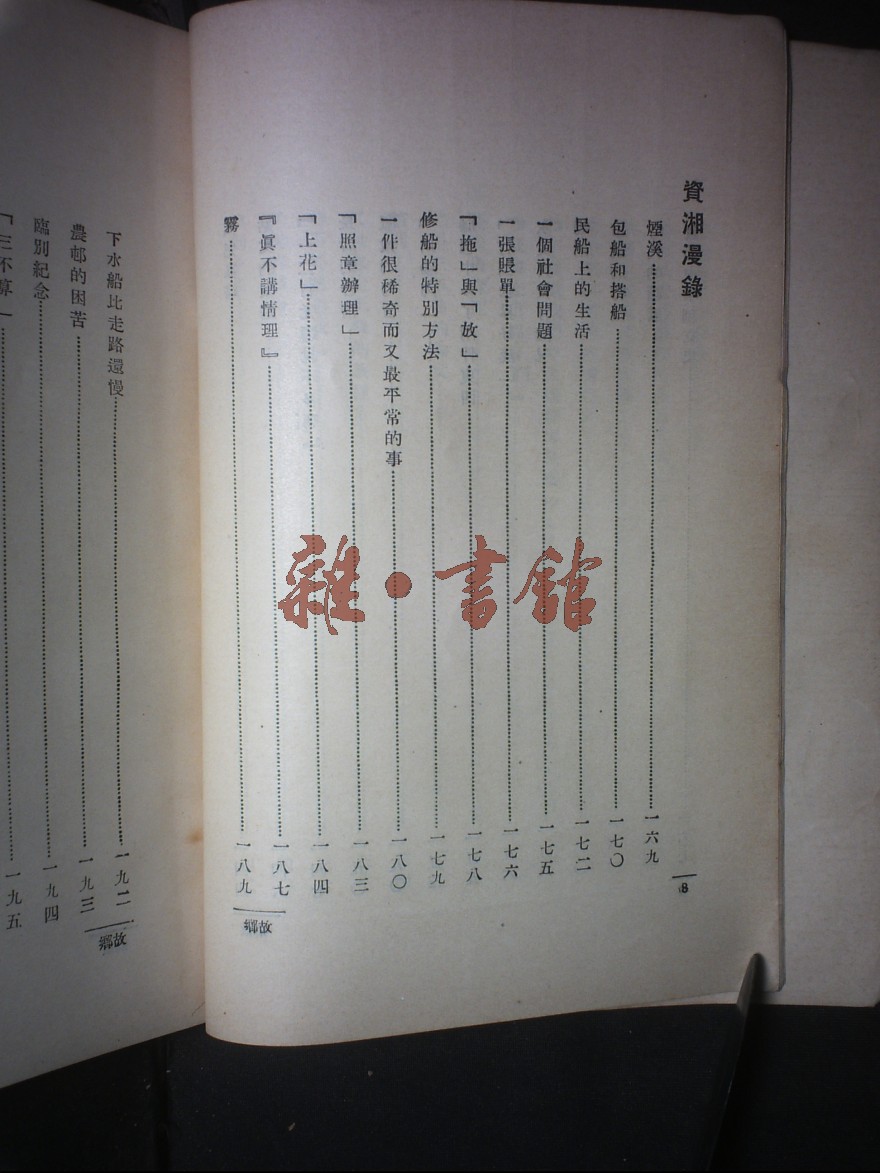 資湘漫錄
煙溪 一六九
包船和搭船 一七〇
民船上的生活 一七二
一個社會問題 一七五
一張賬單 一七六
「拖」與「放」 一七八
修船的特別方法 一七九
一件很稀奇而又最平常的事 一八〇
「照章辦理」 一八三
「上花」 一八四
『眞不講情理』 一八七
霧 一八九
8
故鄉
下水船比走路還慢 一九二
農邨的困苦 一九三
臨別紀念 一九四
「三不算」 一九五
故鄉
雜·書館